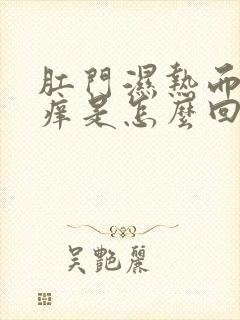 肛門濕熱而
痒是怎麼回
吴艷麗